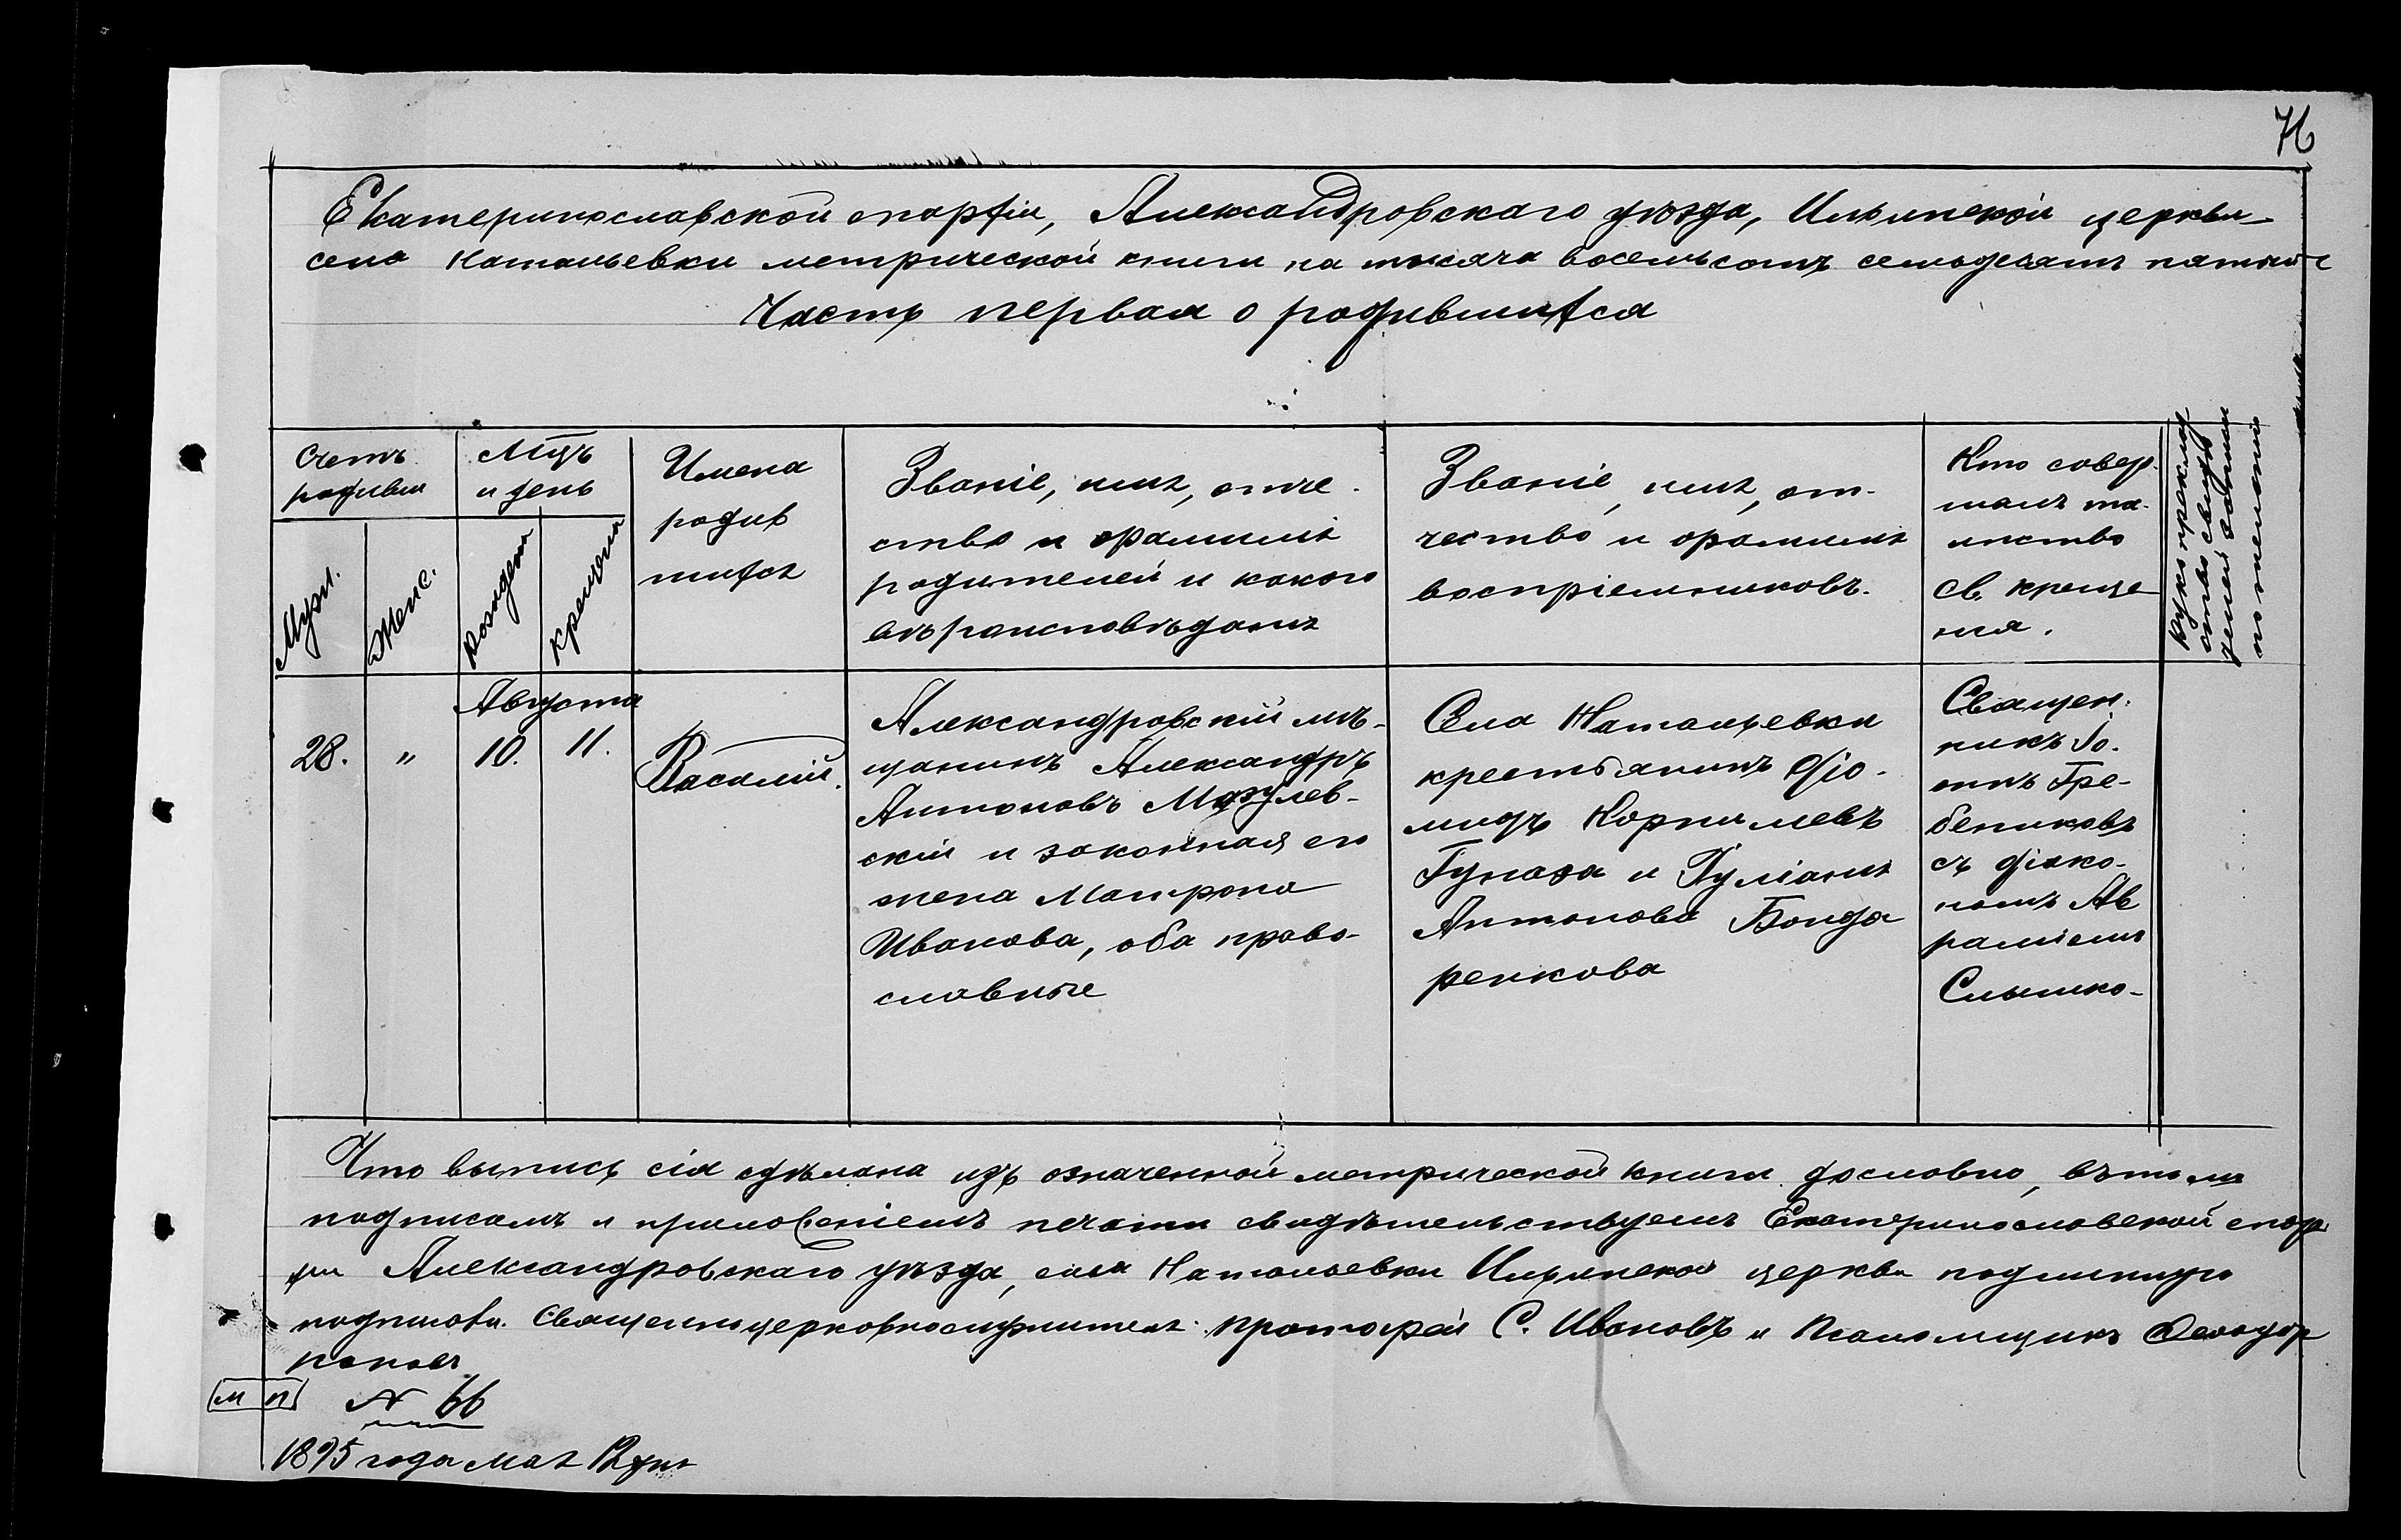 76
Екатеринославской епархіи, Александровскаго уѣзда, Ильинской церкви
села Натальевки метрической книги на тысяча восемьсотъ семьдесятъ пятый
Часть первая о родившихся
Счетъ родивш
Муж.
Женс.
Мцъ и день
Рожден
Крещен
Имена
родив
шихся
Званіе, имя, отче-
ство и фамилія
родителей и какого
вѣроисповѣданія
Званіе, имя, от-
чество и фамилія
воспріемниковъ.
Кто совер-
шалъ та-
инство
св. креще
нія.
Рукоприклад
ство свидѣ
телей записи
по желанію
Августа
28.
"
10.
11.
Василій.
Александровскій мѣ-
щанинъ Александръ
Антоновъ Мазулев-
скій и законная его
жена Матрона
Иванова, оба право-
славные
Села Натальевки
крестьянинъ Діо-
мидъ Корнилевъ
Гуназа и Іуліанія
Антонова Бонда
ренкова
Священ-
никъ Іо-
аннъ Гре-
бениковъ
съ діако-
номъ Ав
раміемъ
Слышко-
Что выпись сія сдѣлана изъ означенной метрической книги дословно, въ томъ
подписомъ и приложеніемъ печати свидѣтельствуемъ Екатеринославской епар
хіи Александровскаго уѣзда, села Натальевки Ильинской церкви подлинную
подписали Священноцерковнослужители: протоіерей С. Ивановъ и Псаломщикъ Ѳеодор
Поповъ
М П
N 66
1895 года мая 12 дня